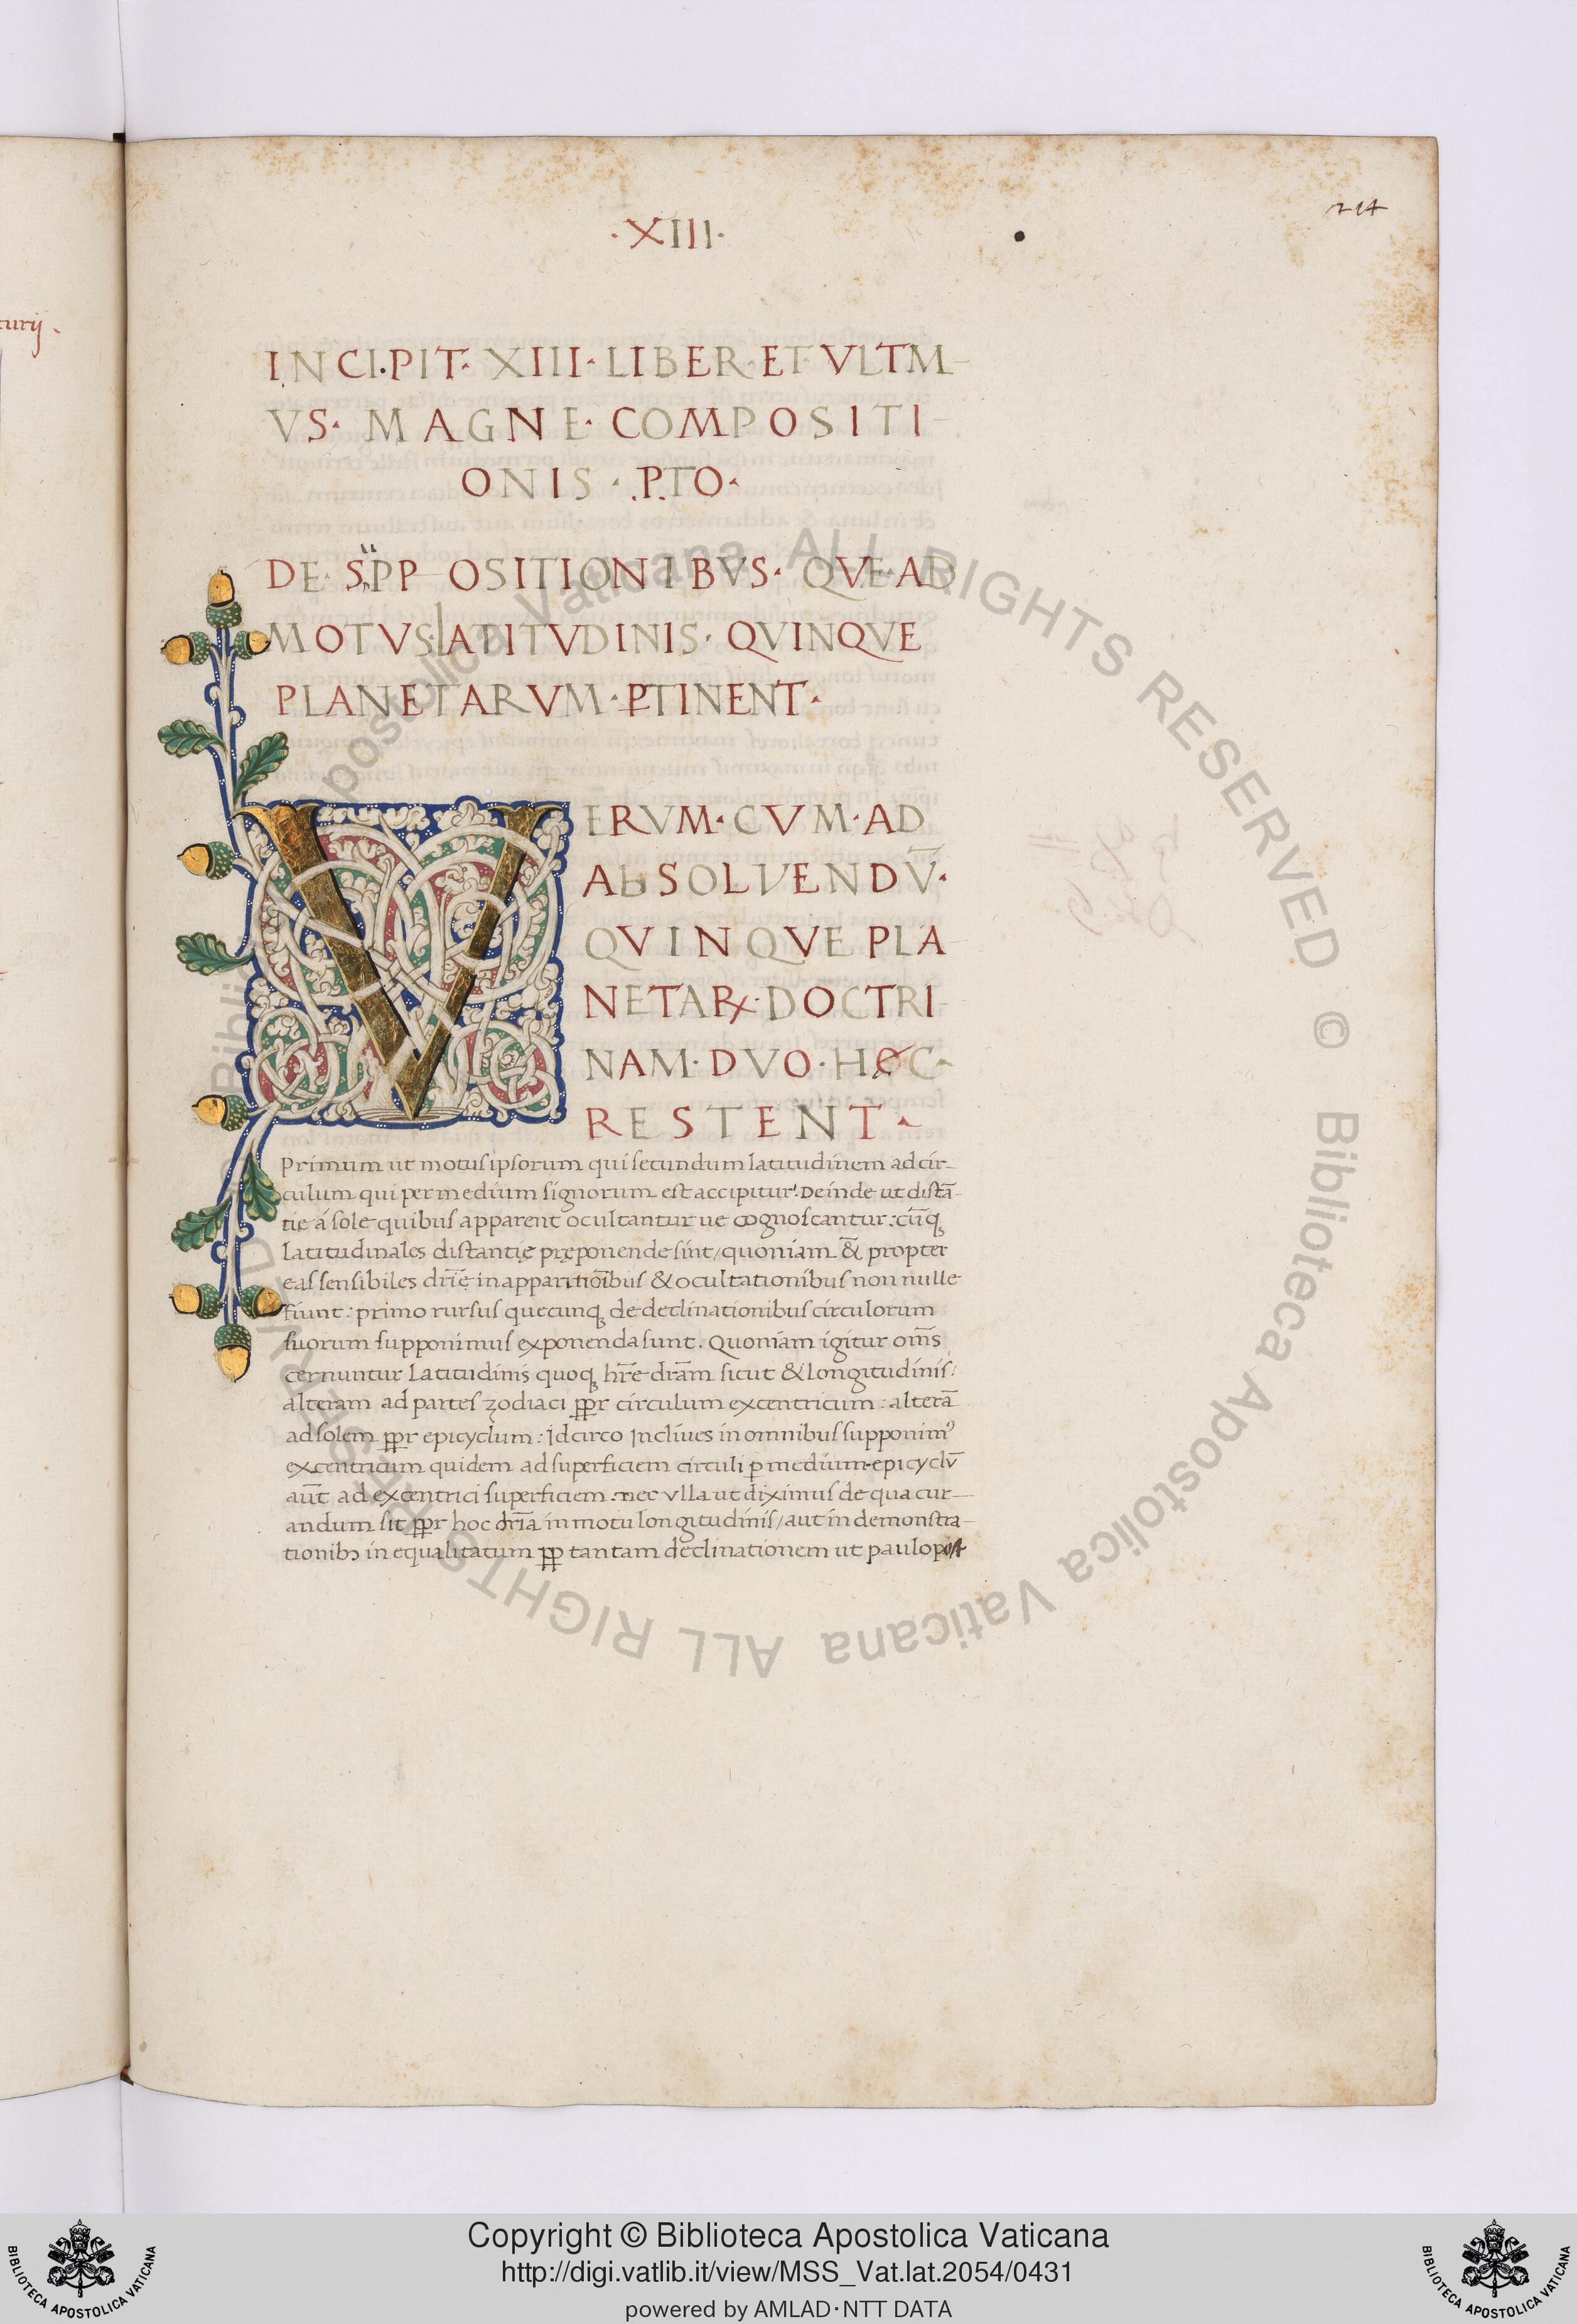 turij.
·XIII·
214
INCI·PIT· XIII· LIBER· ET· VLTM-
VS· MAGNE· COMPOSITI-
ONIS · .P.TO·
DE· S̈PPOSITIONIBVS· QVE·AD
MOTVS·LATITVDINIS· QVINQVE
PLANETARVM·ꝐTINENT·
VERVM·CVM·AD
AbSOLVENDV̄·
QVINQVE PLA
NETAꝜ·DOCTRI-
NAM·DVO·HOC-
RESTENT·
Primum ut motus ipsorum qui secundum latitudinem ad cir-
culum qui per medium signorum est accipitur! Deinde ut distā-
tie á sole quibus apparent ocultantur ue cognoscantur: cūq̨
latitudinales distantię pręponende sint/ quoniam & propter
eas sensibiles dr̄ię in apparitiōibus & ocultationibus non nulle
fiunt: primo rursus quecunq̨ de declinationibus circulorum
suorum supponimus exponenda sunt. Quoniam igitur om̄s
cernuntur Latitudinis quoq̨ hr̄e dr̄am sicut & Longitudinis/
alteram ad partes zodiaci ꝑꝑr circulum excentricum: alterā
ad solem ꝑꝑr epicyclum: Idcirco Inclives in omnibus supponimꝰ
excentricum quidem ad superficiem circuli ꝑ medium·epicyclū
aūt ad excentrici superficiem: nec vlla ut diximus de qua cur-
andum sit ꝑꝑr hoc dr̄ia in motu longitudinis/ aut in demonstra-
tionibꝫ inequalitatum ꝑꝑ tantam declinationem ut paulopost
Biblioteca Apostolica Vaticana ALL RIGHTS RESERVED © Biblioteca Apostolica Vaticana ALL RIGHTS RESERVED
Copyright © Biblioteca Apostolica Vaticana
http://digi.vatlib.it/view/MSS_Vat.lat.2054/0431
powered by AMLAD·NTT DATA
BIBLIOTECA APOSTOLICA VATICANA
BIBLIOTECA APOSTOLICA VATICANA